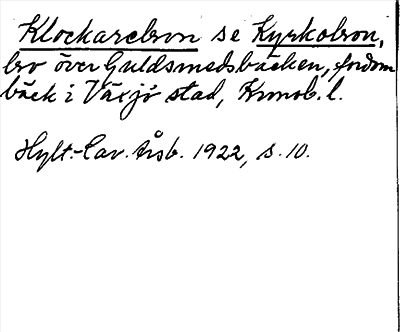 Klockarebron se Kyrkobron,
bro över Guldsmedsbäcken, fordom
bäck i Växjö stad, Kronob. l.
Hylt.-Cav. Årsb. 1922, s. 10.